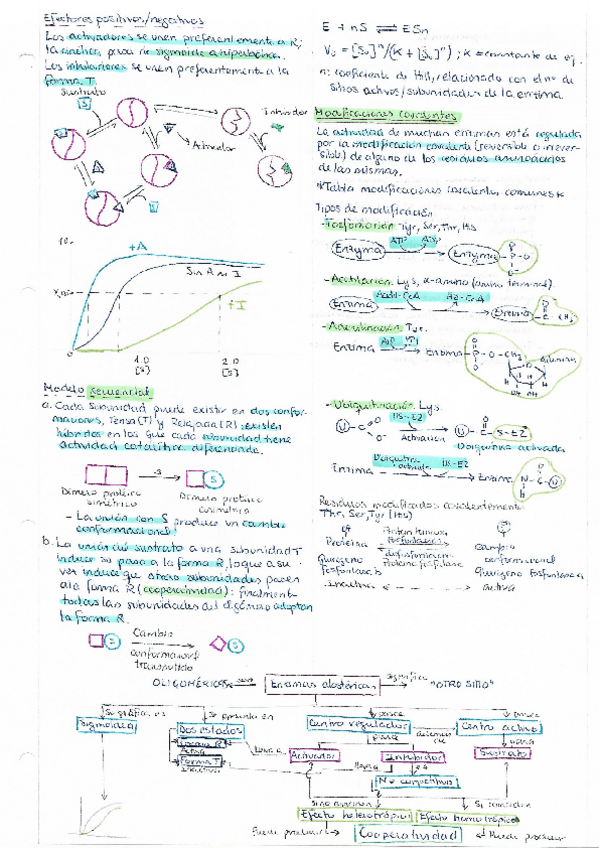 Efectores positivos/negativos
Los activadores se unen preferentemente a R;
la cinética pasa de sigmoidea a hiperbólica.
Los inhibidores se unen preferentemente a la
forma T.
Sustrato
S
Inhibidor
Activador
+A
Sin A ni I
+I
1.0
[S]
2.0
[S]
Modelo secuencial
a. Cada subunidad puede existir en dos confor-
maciones, Tensa(T) y Relajada(R): existen
híbridos en los que cada subunidad tiene
actividad catalítica diferenciada.
S
S
Dímero proteico
simétrico
Dímero proteico
asimétrico
- La unión con S produce un cambio
conformacional
b. La unión del sustrato a una subunidad T
induce su paso a la forma R, lo que a su
vez induce que otras subunidades pasen
a la forma R (cooperatividad): finalmente
todas las subunidades del oligómero adoptan
la forma R.
S
Cambio
conformacional
transmitido
S
E + nS ⇌ ESn
n: coeficiente de Hill, relacionado con el nº de
sitios activos/subunidades de la enzima.
Modificaciones covalentes
La actividad de muchas enzimas está regulada
por la modificación covalente (reversible o irrever-
sible) de alguno de los residuos aminoácidos
de las mismas.
*Tabla modificaciones covalentes comunes*
Tipos de modificación
- Fosforilación: Tyr, Ser, Thr, His
Enzima
ATP
ADP
Enzima
- Acetilación: Lys, α-amino (amino terminal)
Enzima
Acetil-CoA
HS-CoA
Enzima
- Adenilación: Tyr.
Enzima
ATP
PPi
Enzima
- Ubiquitinación: Lys
HS-E2
Activación
S-E2
Ubiquitina activada
Enzima
Ubiquitina
activada
HS-E2
Enzima
Residuos modificados covalentemente
Thr, Ser, Tyr (His)
Proteína
Cambio
conformacional
Inactiva
Activa
OLIGOMÉRICAS
son
Enzimas alostéricas
significa
"OTRO SITIO"
Su gráfica es
Se presenta en
posee
posee
Sigmoidea
Dos estados
Centro regulador
Centro activo
Forma R
Activa
Forma T
Inactiva
Activador
Inhibidor
Sustrato
No competitivo
Efecto heterotrópico
Efecto homotrópico
Puede producir
Cooperatividad
Puede producir